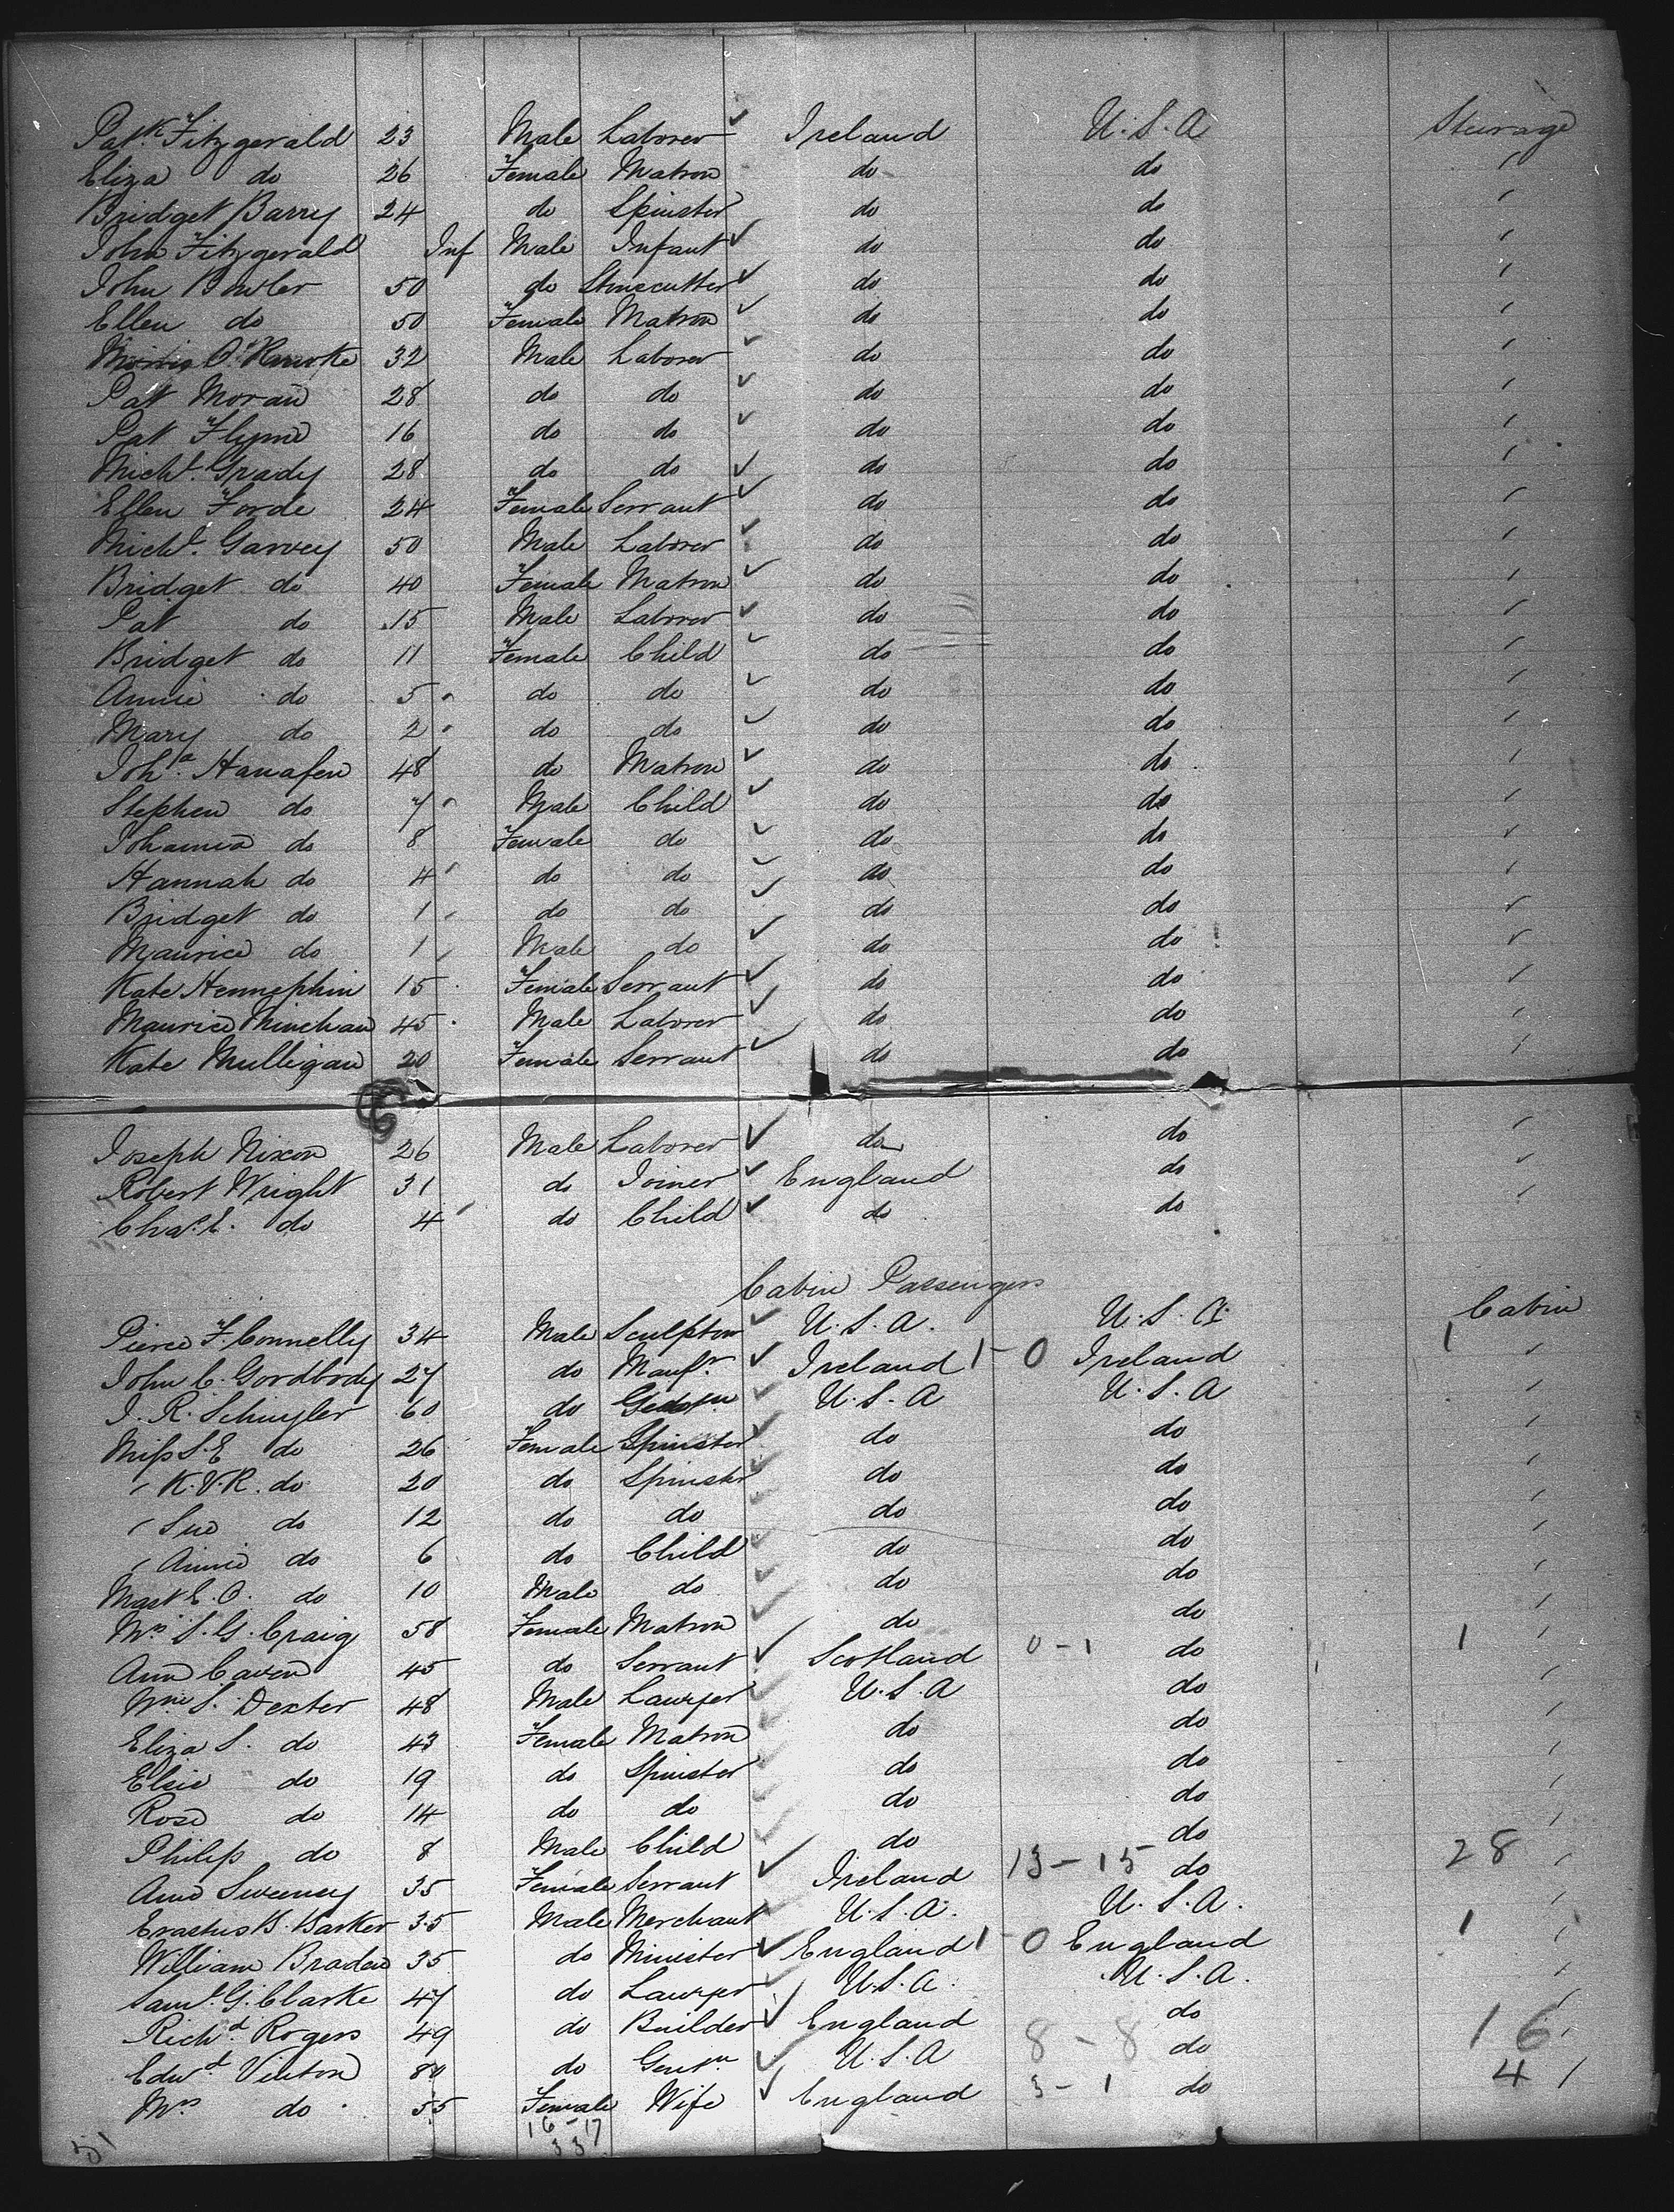 Patk Fitzgerald 23 Male Laborer Ireland U.S.A Steerage
Eliza do 26 Female Matron do do
Bridget Barry 24 do Spinster do do
John Fitzgerald Inf Male Infant do do
John Bowler 50 do Stonecutter do do
Ellen do 50 Female Matron do do
32 Male Laborer do do
Pat Moran 28 do do do do
Pat Flynn 16 do do do do
Michl. Grady 28 do do do do
Ellen Forde 24 Female Servant do do
Michl. Garvey 50 Male Laborer do do
Bridget do 40 Female Matron do do
Pat do 15 Male Laborer do do
Bridget do 11 Female Child do do
Annie do 5 do do do do
Mary do 2 do do do do
Joha. Hanafen 48 do Matron do do
Stephen do 7 Male Child do do
Johanna do 8 Female do do do
Hannah do 4 do do do do
Bridget do 1 do do do do
Maurice do 1 Male do do do
Kate Hennephin 15 Female Servant do do
Maurice Minchan 45 Male Laborer do do
Kate Mulligan 20 Female Servant do do
Joseph Nixon 26 Male Laborer do do
Robert Wright 31 do Joiner England do
Chas. E. do 4 do Child do do
Cabin Passengers
Pierce F. Connelly 34 Male Sculptor U.S.A. U.S.A. Cabin
John C. Goodbody 27 do Manfr. Ireland 1-0 Ireland 1
J. R. Schuyler 60 do U.S.A U.S.A
Miss S. E do 26 Female Spinster do do
" K.V.R. do 20 do Spinster do do
" Sue do 12 do do do do
" Annie do 6 do Child do do
Mast E. O. do 10 Male do do do
Mrs S. G. Craig 58 Female Matron do do
Ann Caven 45 do Servant Scotland 0-1 do 1
Wm S. Dexter 48 Male Lawyer U.S.A do
Eliza S. do 43 Female Matron do do
Elsie do 19 do Spinster do do
Rose do 14 do do do do
Philip do 8 Male Child do do
Ann Sweeney 35 Female Servant Ireland 13-15 do 28
Erastus B. Barker 35 Male Merchant U.S.A. U.S.A.
William Braden 35 do Minister England 1-0 England 1
Saml. G. Clarke 47 do Lawyer U.S.A. U.S.A.
Richd. Rogers 49 do Builder England do
Edwd. Vinton 80 do Gentn U.S.A 8-8 do 16
Mrs do 55 Female Wife England 3-1 do 4
16-17
33
51